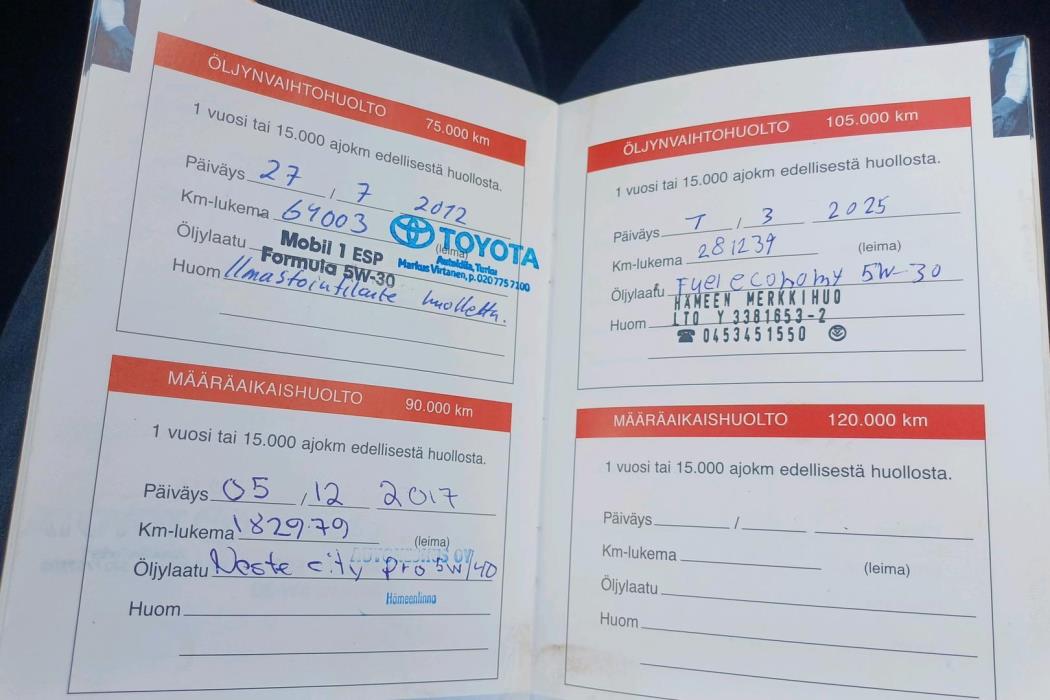 ÖLJYNVAIHTOHUOLTO 75.000 km
1 vuosi tai 15.000 ajokm edellisestä huollosta.
Päiväys 27 / 7 2012
Km-lukema 64003
(leima)
TOYOTA
Autotalo, Turku
Markus Virtanen, p. 020 775 7200
Öljylaatu Mobil 1 ESP
Formula 5W-30
Huom Ilmastointilaite huollettu.
MÄÄRÄAIKAISHUOLTO 90.000 km
1 vuosi tai 15.000 ajokm edellisestä huollosta.
Päiväys 05 / 12 2017
Km-lukema 182979
(leima)
Öljylaatu Neste city pro 5W/40
Hämeenlinna
Huom
ÖLJYNVAIHTOHUOLTO 105.000 km
1 vuosi tai 15.000 ajokm edellisestä huollosta.
Päiväys 7 / 3 2025
Km-lukema 281239
(leima)
Öljylaatu Fuel economy 5W-30
HÄMEEN MERKKIHUO
Huom LTO Y 3381653-2
☎ 0453451550
MÄÄRÄAIKAISHUOLTO 120.000 km
1 vuosi tai 15.000 ajokm edellisestä huollosta.
Päiväys /
Km-lukema
(leima)
Öljylaatu
Huom